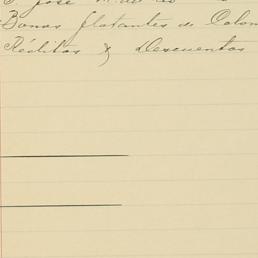 José
Bonos flotantes de Colom
Réditos y Descuentos